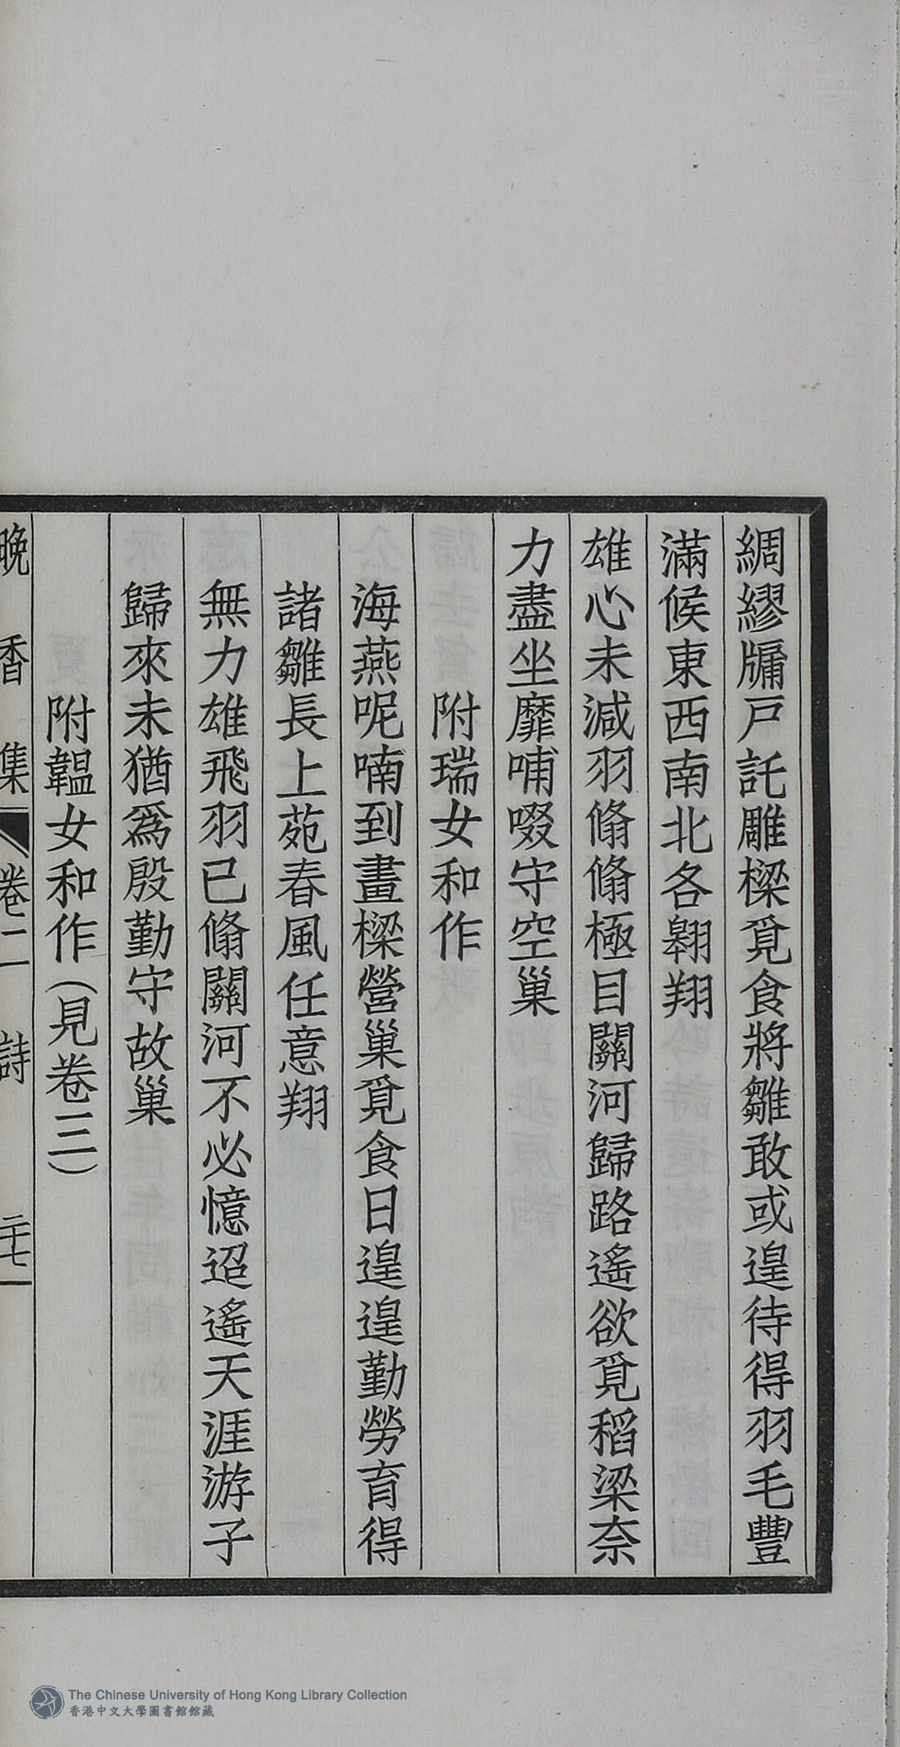 綢繆牖戸託雕樑覓食將雛敢或遑待得羽毛豐
滿候東西南北各翱翔
雄心未減羽翛翛極目關河歸路遙欲覓稻梁奈
力盡坐靡哺啜守空巢
附瑞女和作
海燕呢喃到畫樑營巢覓食日遑遑勤勞育得
諸雛長上苑春風任意翔
無力雄飛羽已翛關河不必憶迢遙天涯游子
歸來未猶爲殷勤守故巢
附韞女和作(見卷三)
晚香集 卷二 詩 二十七
The Chinese University of Hong Kong Library Collection
香港中文大學圖書館館藏